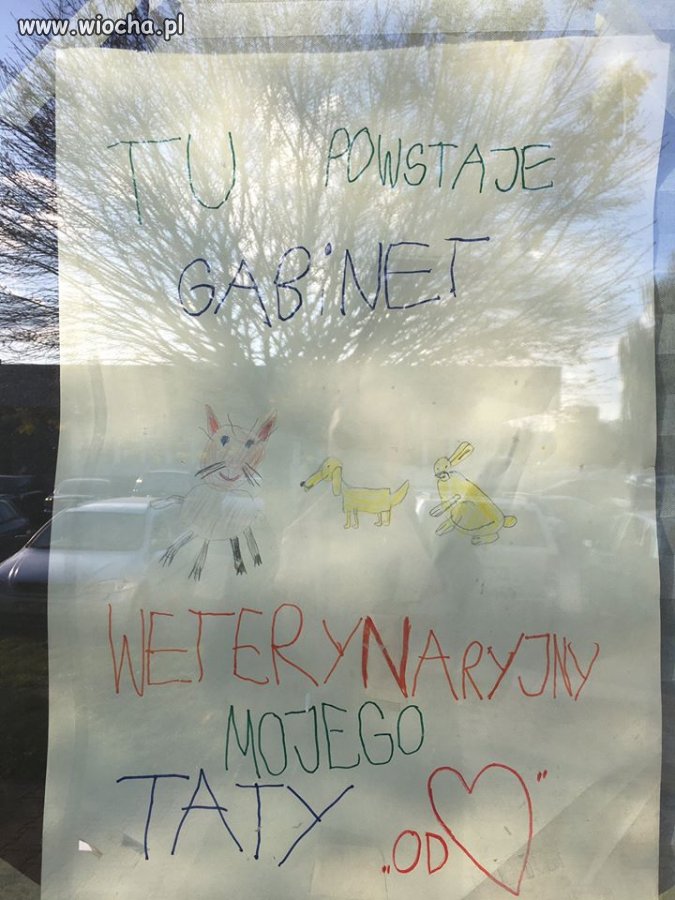 www.wiocha.pl
TU POWSTAJE
GABiNET
WETERYNARYJNY
MOJEGO
TATY „OD ♥”